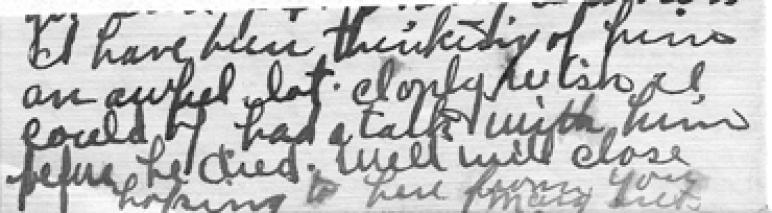 I have been thinking of him
an awful lot. I only wish I
could of had a talk with him
before he died. Well will close
hoping to here from you